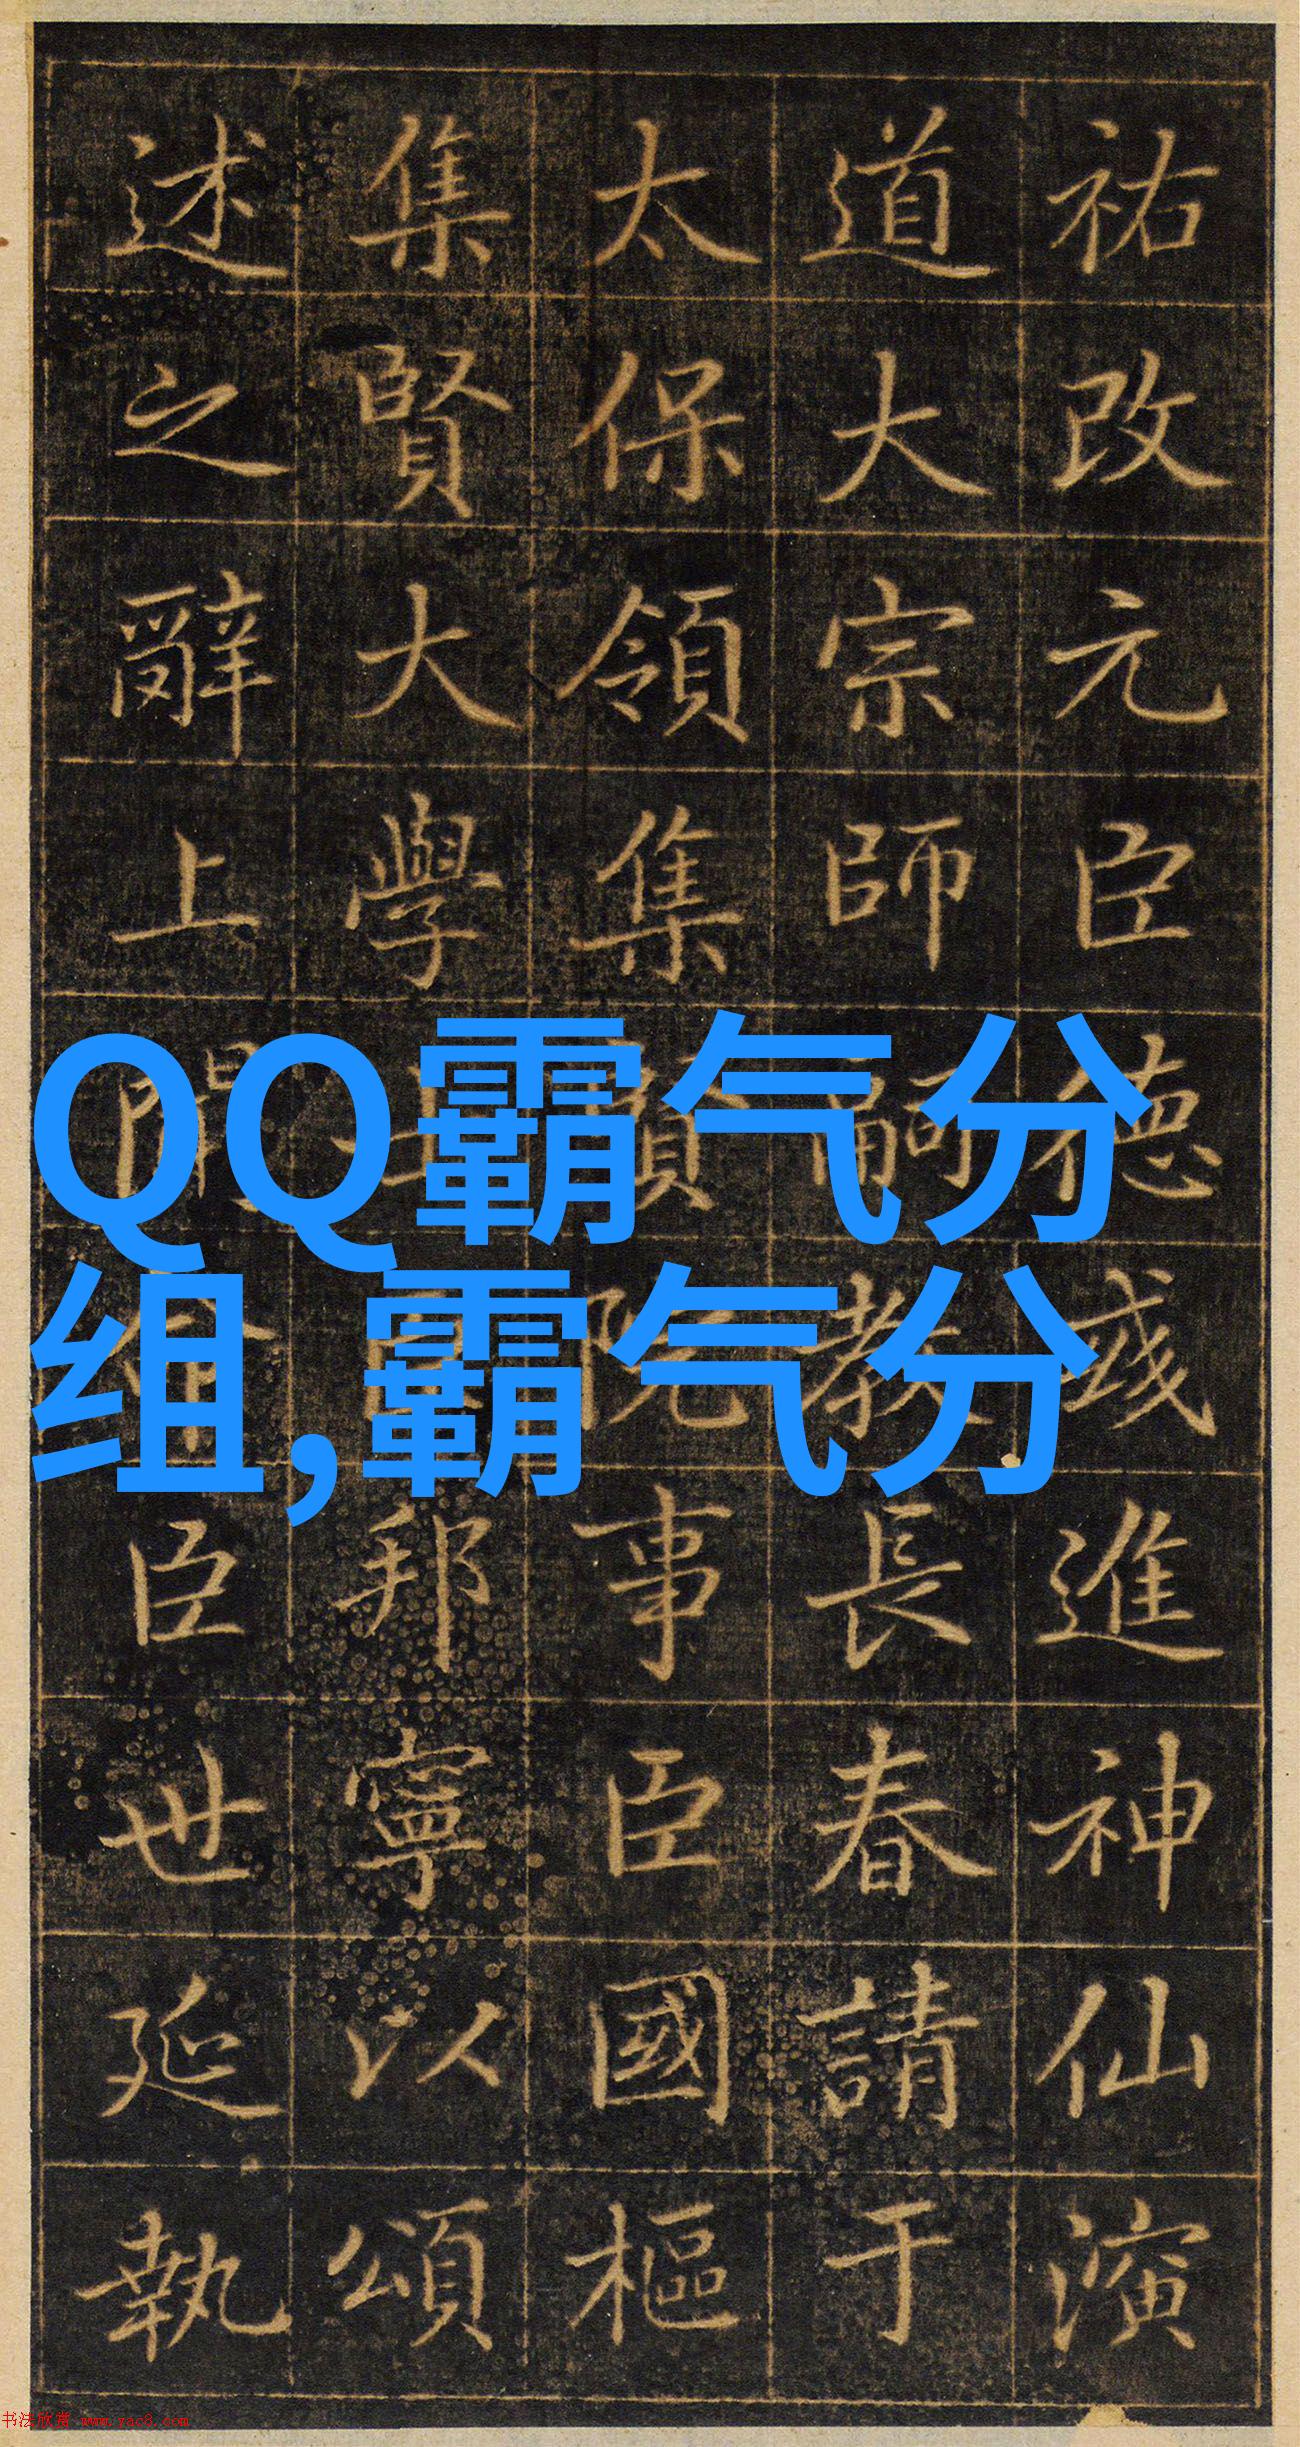 祐改元臣德彧進神仙演
道大宗師嗣教長春請于
太保領集賢院事臣國樞
集賢大學士臣邦寧以頌
述之辭上聞命臣世延執
QQ霸气分
组,霸气分
书法欣赏 www.yac8.com